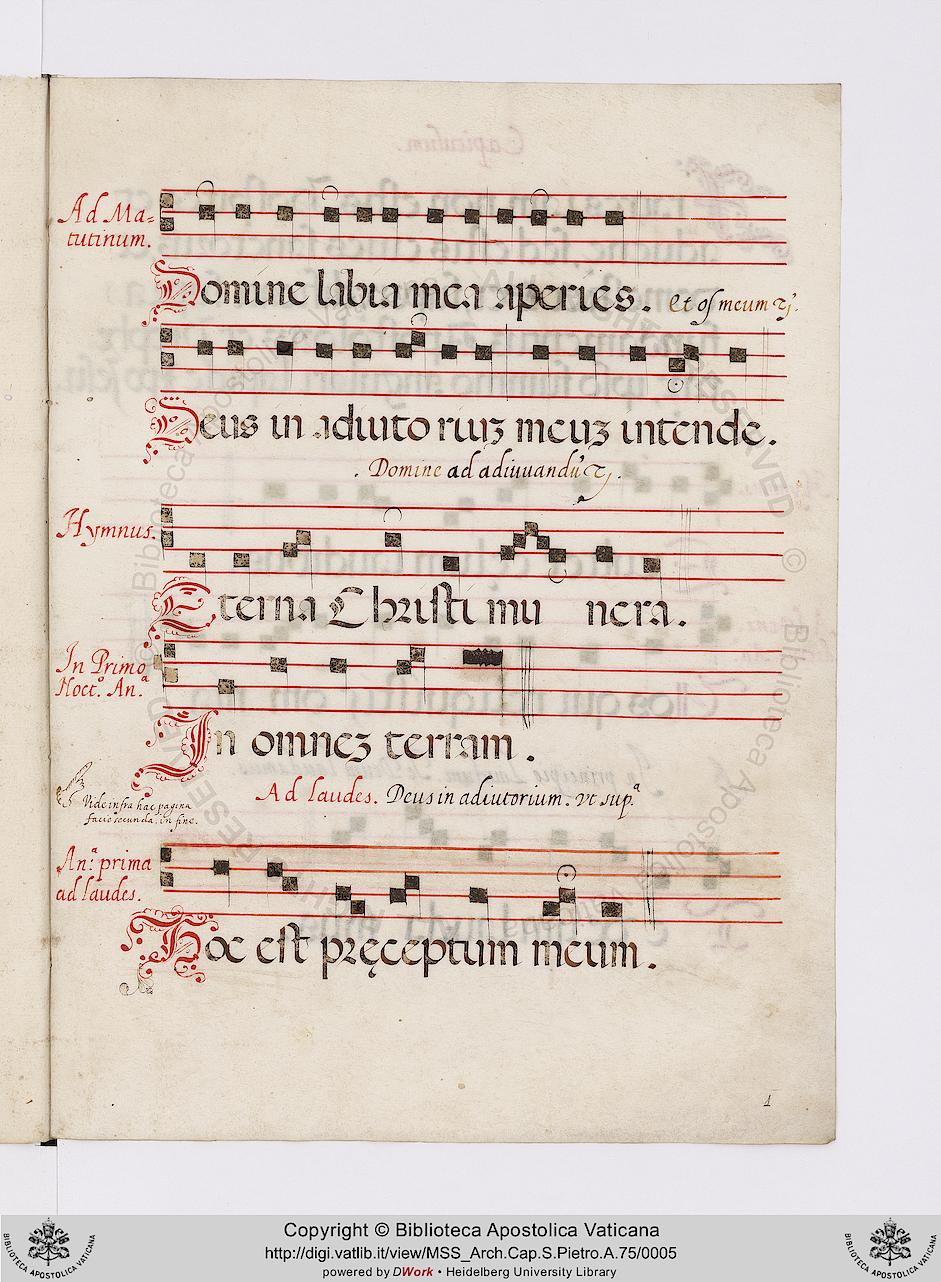 Ad Ma=
tutinum.
Domine labia mea aperies. et os meum
Deus in adiuto riuȝ meuȝ intende.
. Domine ad adiuuandu'
Hymnus.
Eterna Christi mu nera.
In Primo
Noct.º An.ª
In omneȝ terram .
Ad laudes. Deus in adiutorium. vt sup.ª
Vide infra hac pagina
facie secunda. in fine.
An.ª prima
ad laudes.
Hoc est pręceptum meum.
1
Copyright © Biblioteca Apostolica Vaticana
http://digi.vatlib.it/view/MSS_Arch.Cap.S.Pietro.A.75/0005
powered by DWork • Heidelberg University Library